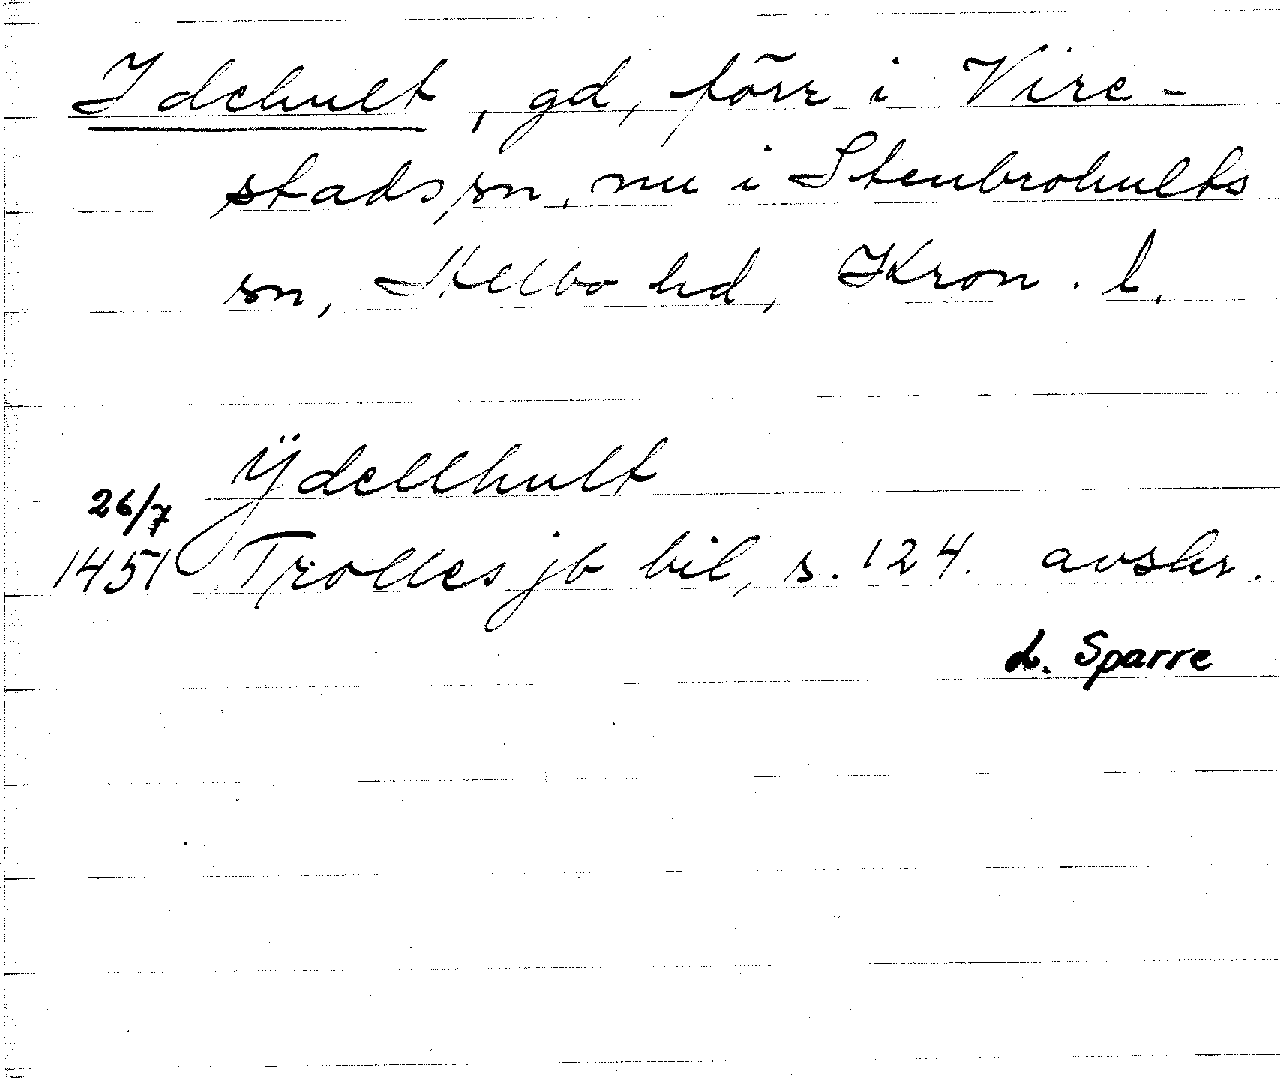 Idehult, gd, förr i Vire-
stads sn, nu i Stenbrohults
sn, Allbo hd, Kron. l.
Ÿdellhult
26/7
1451 Trolles jb bil, s. 124. avskr.
L. Sparre